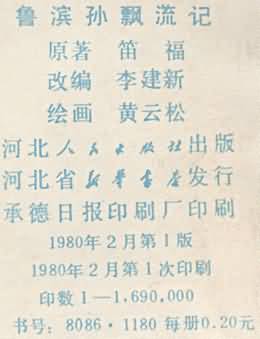 鲁滨孙飘流记
原著 笛福
改编 李建新
绘画 黄云松
河北人民出版社出版
河北省新华书店发行
承德日报印刷厂印刷
1980年2月第1版
1980年2月第1次印刷
印数1—1,690,000
书号：8086·1180 每册0.20元